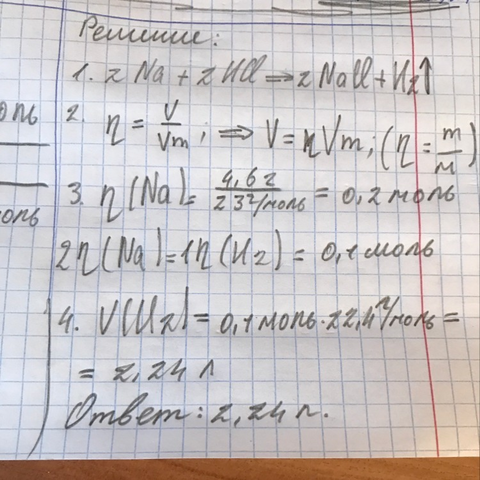 Решение:
1. 2Na + 2HCl => 2NaCl + H2↑
оль
2. η = V/Vm; => V = ηVm; (η = m/м)
3. η(Na) = 4,6г/23г/моль = 0,2 моль
оль
2η(Na) = 1η(H2) = 0,1 моль
4. V(H2) = 0,1 моль · 22,4 л/моль =
= 2,24 л
Ответ: 2,24 л.